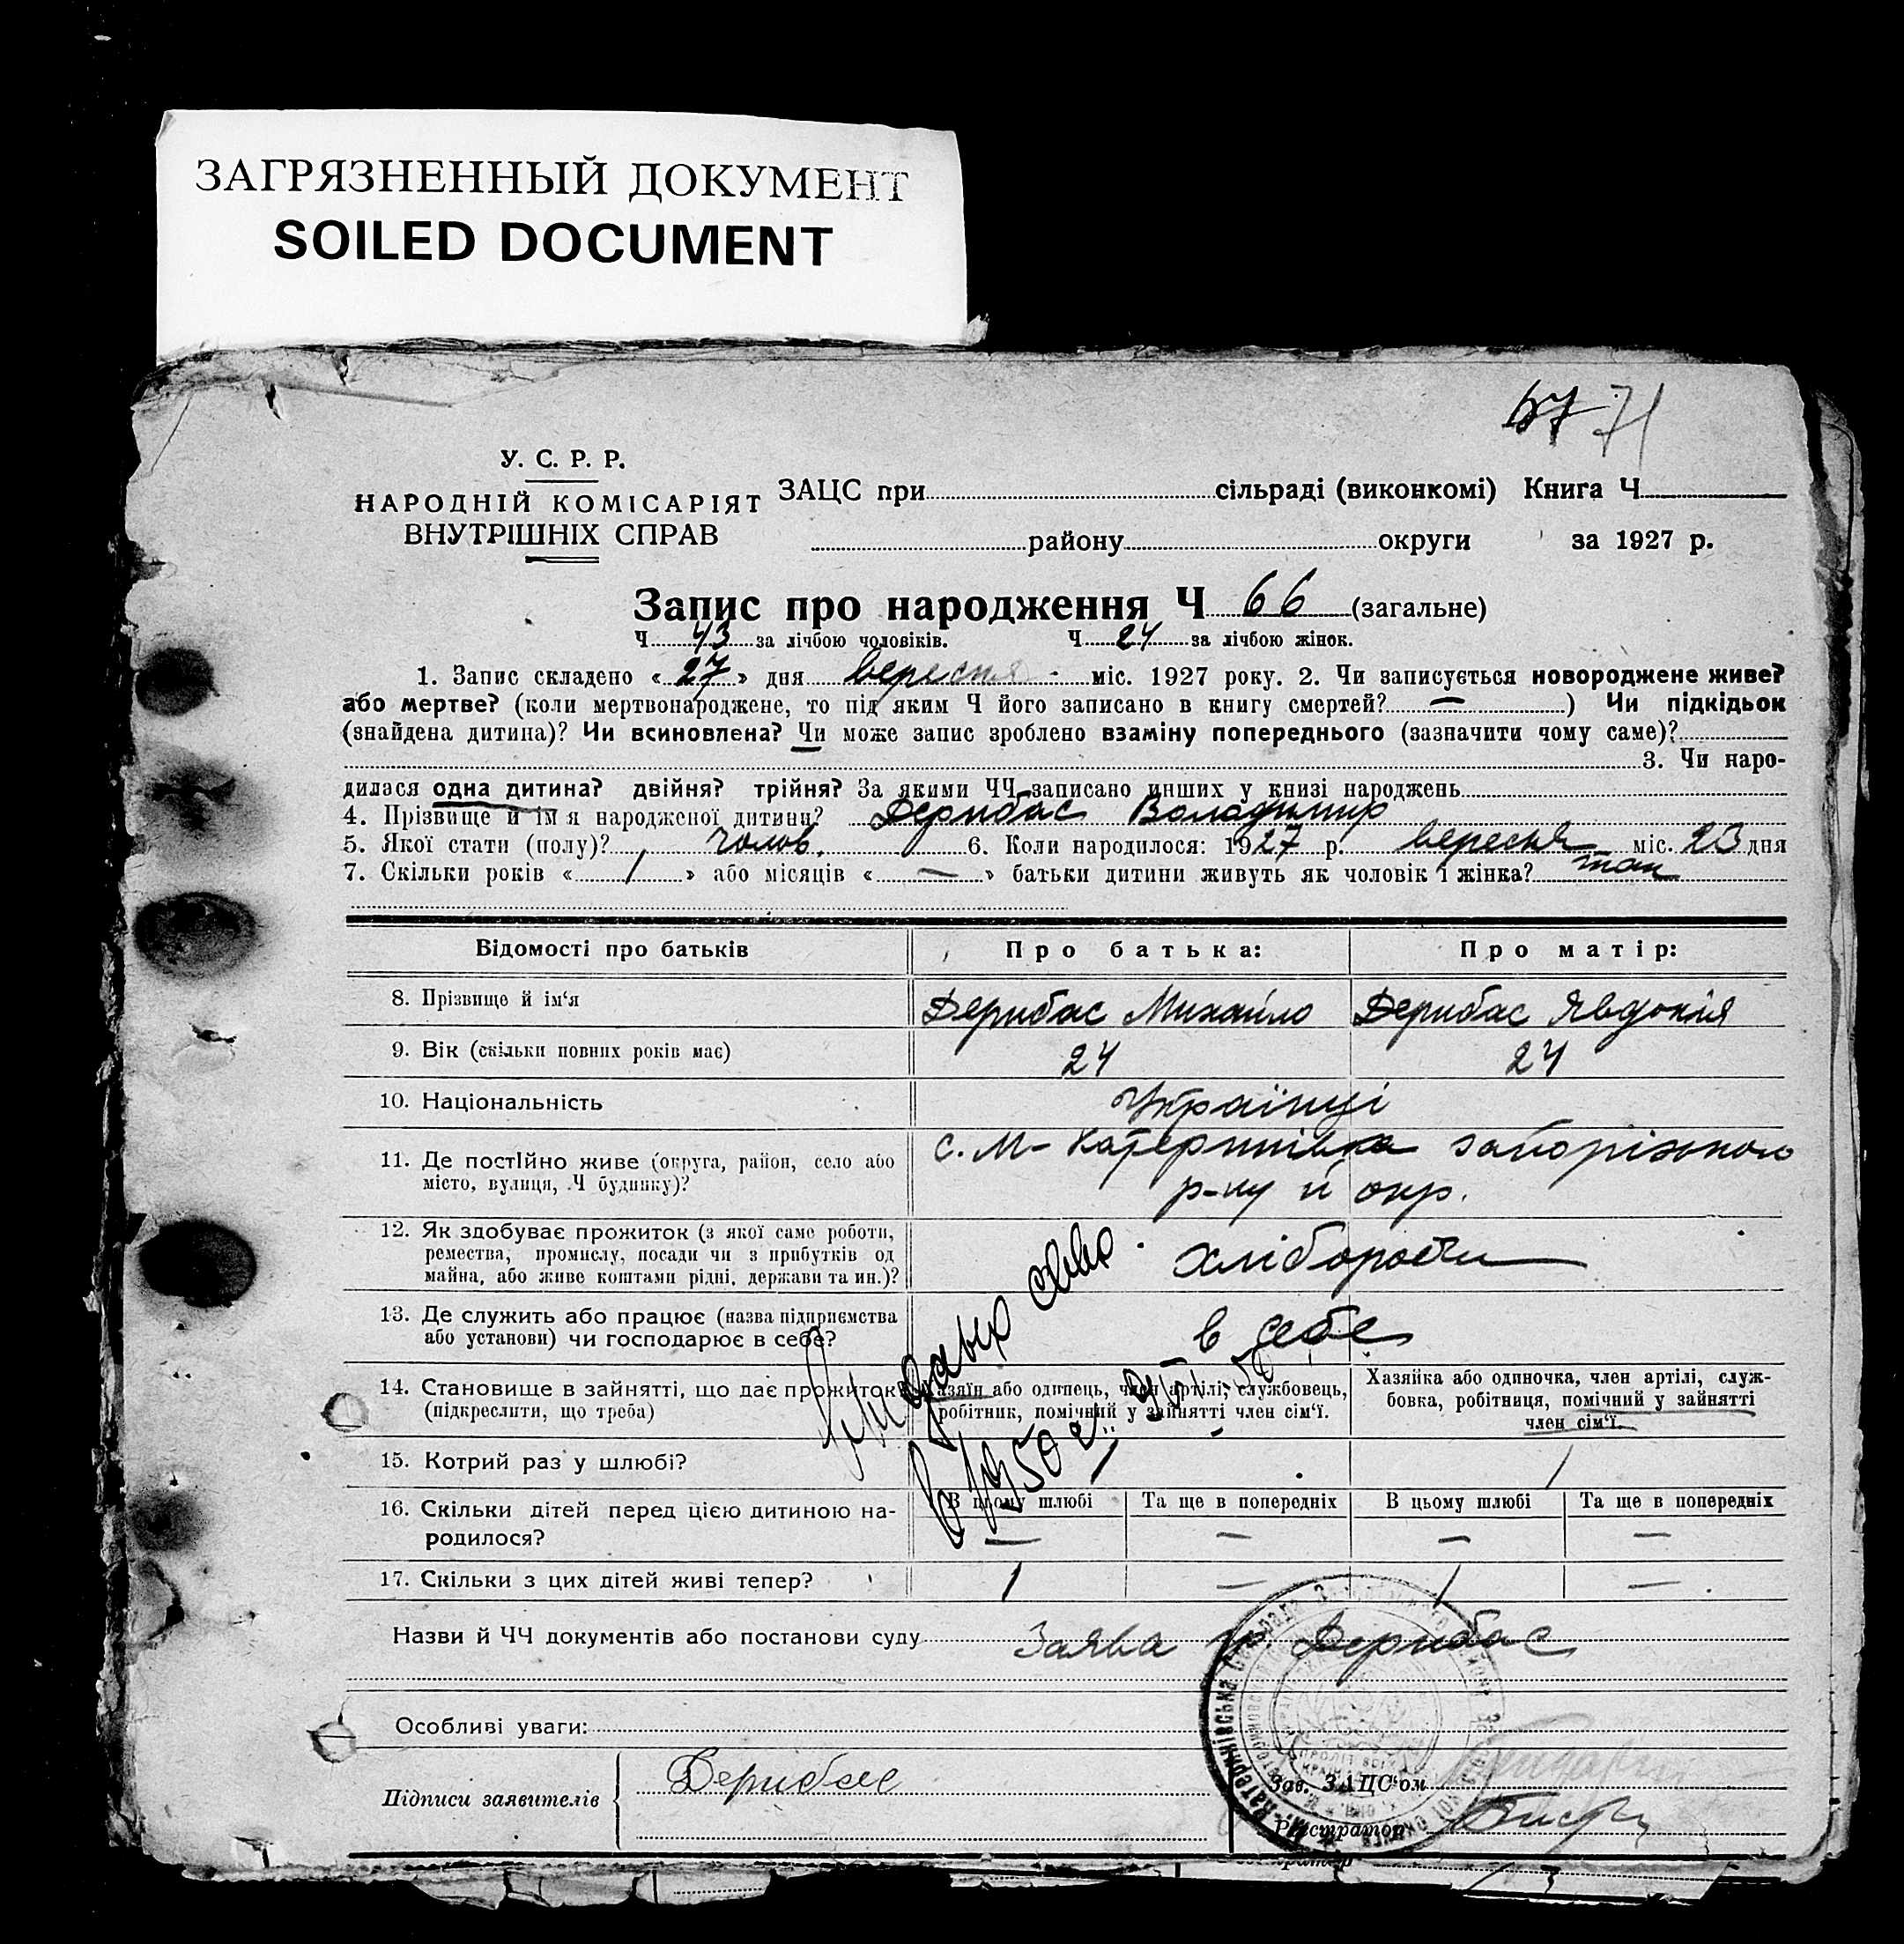 ЗАГРЯЗНЕННЫЙ ДОКУМЕНТ
SOILED DOCUMENT
67 71
У. С. Р. Р.
НАРОДНІЙ КОМІСАРІЯТ
ВНУТРІШНІХ СПРАВ
ЗАЦС при сільраді (виконкомі) Книга Ч
району округи за 1927 р.
Запис про народження Ч 66 (загальне)
Ч 43 за лічбою чоловіків. Ч 24 за лічбою жінок.
1. Запис складено « 27 » дня вересня міс. 1927 року. 2. Чи записується новороджене живе?
або мертве? (коли мертвонароджене, то під яким Ч його записано в книгу смертей? — ) Чи підкідьок
(знайдена дитина)? Чи всиновлена? Чи може запис зроблено взаміну попереднього (зазначити чому саме)?
3. Чи наро-
дилася одна дитина? двійня? трійня? За якими ЧЧ записано инших у книзі народжень
4. Прізвище й ім'я народженої дитини? Дерибас Володимир
5. Якої стати (полу)? чолов. 6. Коли народилося: 1927 р. вересня міс. 23 дня
7. Скільки років « 1 » або місяців « — » батьки дитини живуть як чоловік і жінка? так
Відомості про батьків Про батька: Про матір:
8. Прізвище й ім'я Дерибас Михайло Дерибас Явдокія
9. Вік (скільки повних років має) 24 24
10. Національність Українці
11. Де постійно живе (округа, район, село або
місто, вулиця, Ч будинку)?
с. М-Катеринівка запорізького
р-ну й окр.
12. Як здобуває прожиток (з якої саме роботи,
ремества, промислу, посади чи з прибутків од
майна, або живе коштами рідні, держави та ин.)?
хлібороби
13. Де служить або працює (назва підприємства
або установи) чи господарює в себе?
в себе
14. Становище в зайнятті, що дає прожиток
(підкреслити, що треба)
Хазяїн або одинець, член артілі, службовець,
робітник, помічний у зайнятті член сім'ї.
Хазяйка або одиночка, член артілі, служ-
бовка, робітниця, помічний у зайнятті
член сім'ї.
15. Котрий раз у шлюбі? 1 1
16. Скільки дітей перед цією дитиною на-
родилося?
В цьому шлюбі Та ще в попередніх В цьому шлюбі Та ще в попередніх
— — — —
17. Скільки з цих дітей живі тепер? 1 — 1 —
в 1950 г.
Назви й ЧЧ документів або постанови суду Заява гр. Дерибас
Особливі уваги:
Підписи заявителів Дерибас
Зав. ЗАЦС'ом
Реєстратор